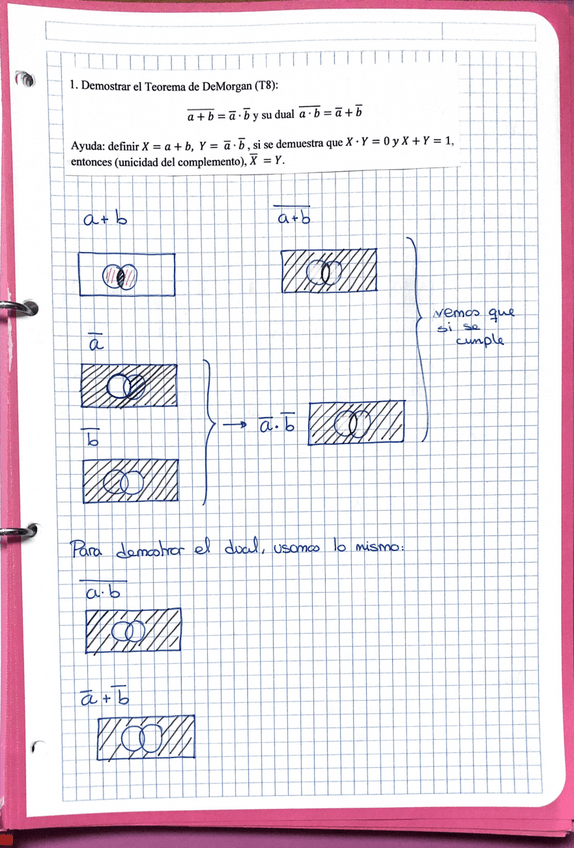 1. Demostrar el Teorema de DeMorgan (T8):
$\overline{a+b} = \overline{a} \cdot \overline{b}$ y su dual $\overline{a \cdot b} = \overline{a} + \overline{b}$
Ayuda: definir $X = a + b$, $Y = \overline{a} \cdot \overline{b}$, si se demuestra que $X \cdot Y = 0$ y $X + Y = 1$,
entonces (unicidad del complemento), $\overline{X} = Y$.
$a+b$
$\overline{a+b}$
vemos que
si se
cumple
$\overline{a}$
$\overline{b}$
→ $\overline{a} \cdot \overline{b}$
Para demostrar el dual, usamos lo mismo:
$\overline{a \cdot b}$
$\overline{a} + \overline{b}$